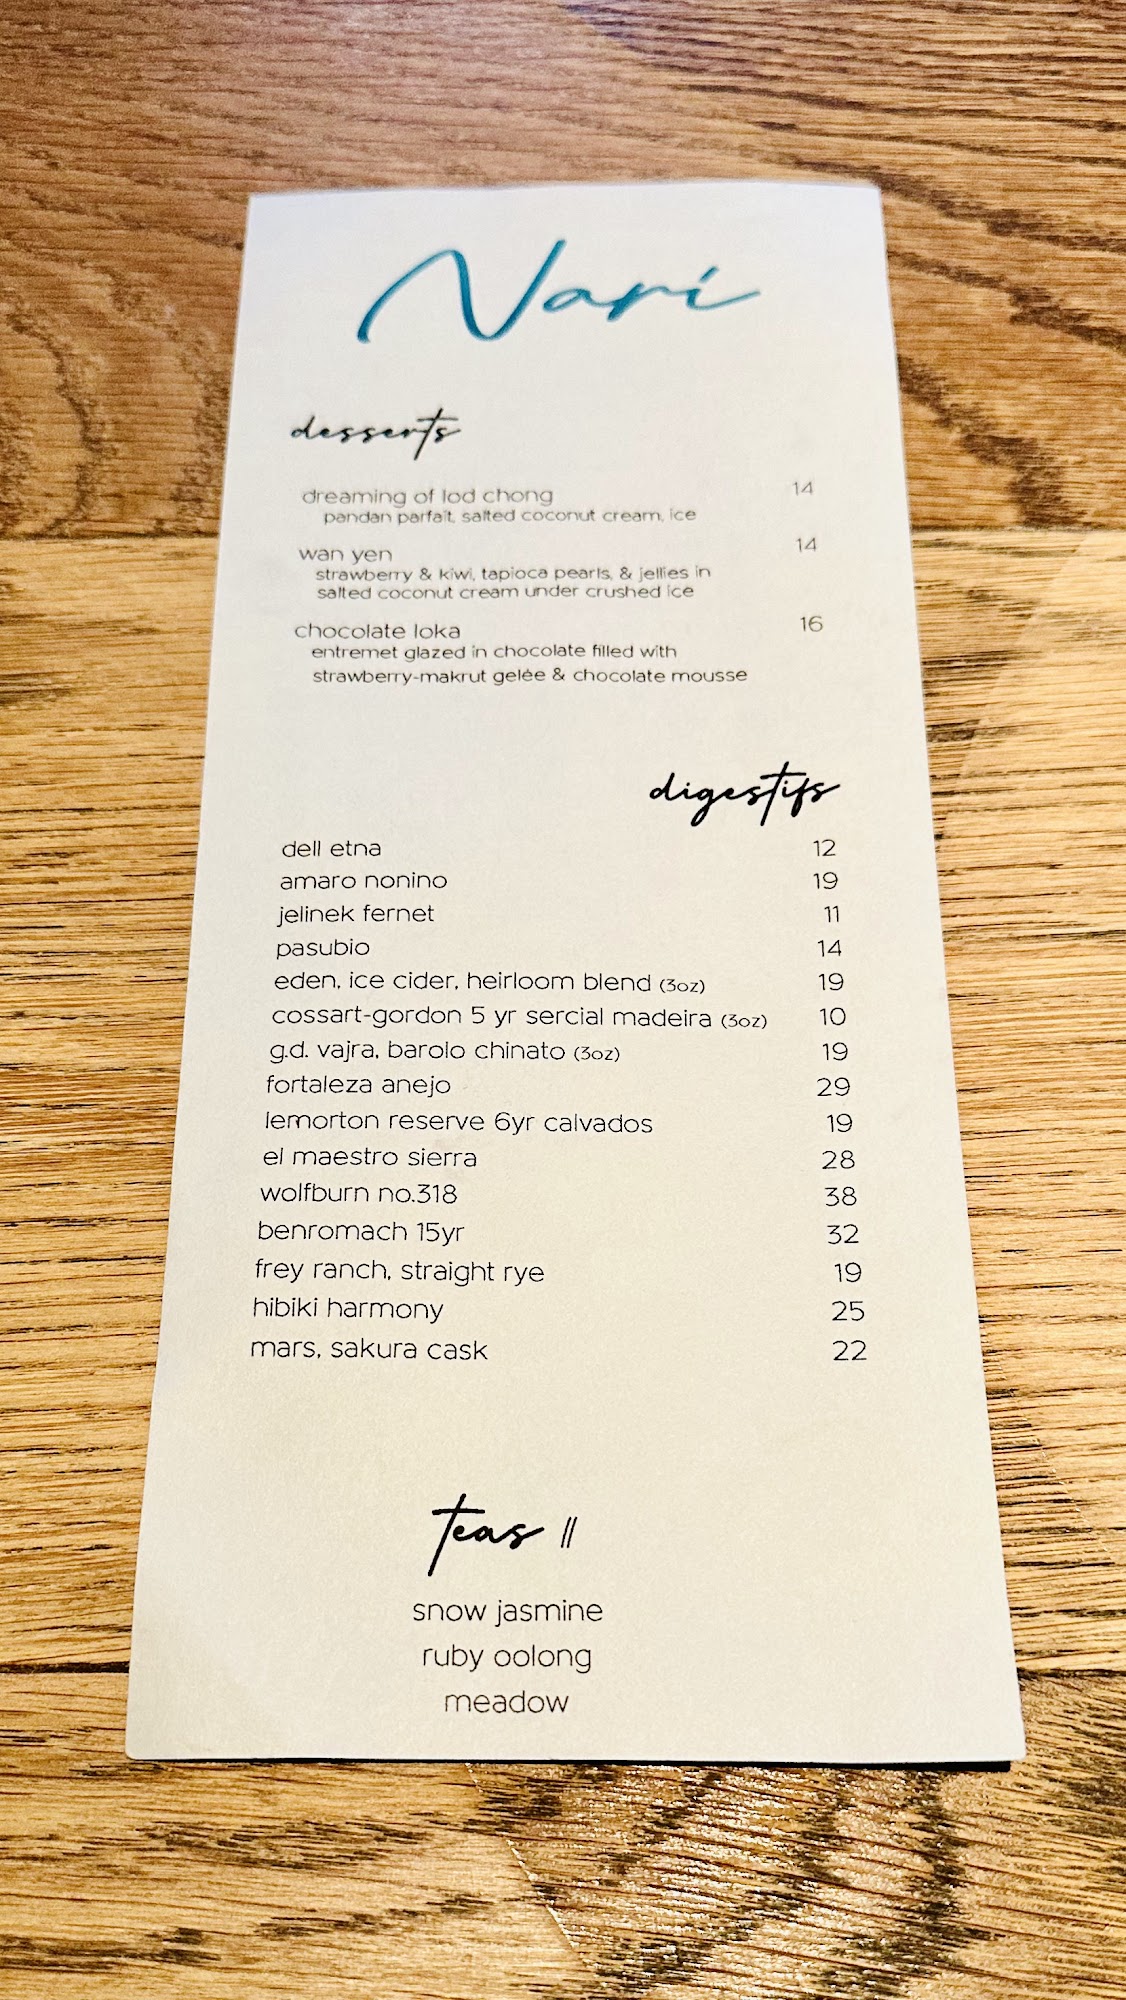 Nari
desserts
dreaming of lod chong 14
pandan parfait, salted coconut cream, ice
wan yen 14
strawberry & kiwi, tapioca pearls, & jellies in
salted coconut cream under crushed ice
chocolate loka 16
entremet glazed in chocolate filled with
strawberry-makrut gelée & chocolate mousse
digestifs
dell etna 12
amaro nonino 19
jelinek fernet 11
pasubio 14
eden, ice cider, heirloom blend (3oz) 19
cossart-gordon 5 yr sercial madeira (3oz) 10
g.d. vajra, barolo chinato (3oz) 19
fortaleza anejo 29
lemorton reserve 6yr calvados 19
el maestro sierra 28
wolfburn no.318 38
benromach 15yr 32
frey ranch, straight rye 19
hibiki harmony 25
mars, sakura cask 22
teas //
snow jasmine
ruby oolong
meadow